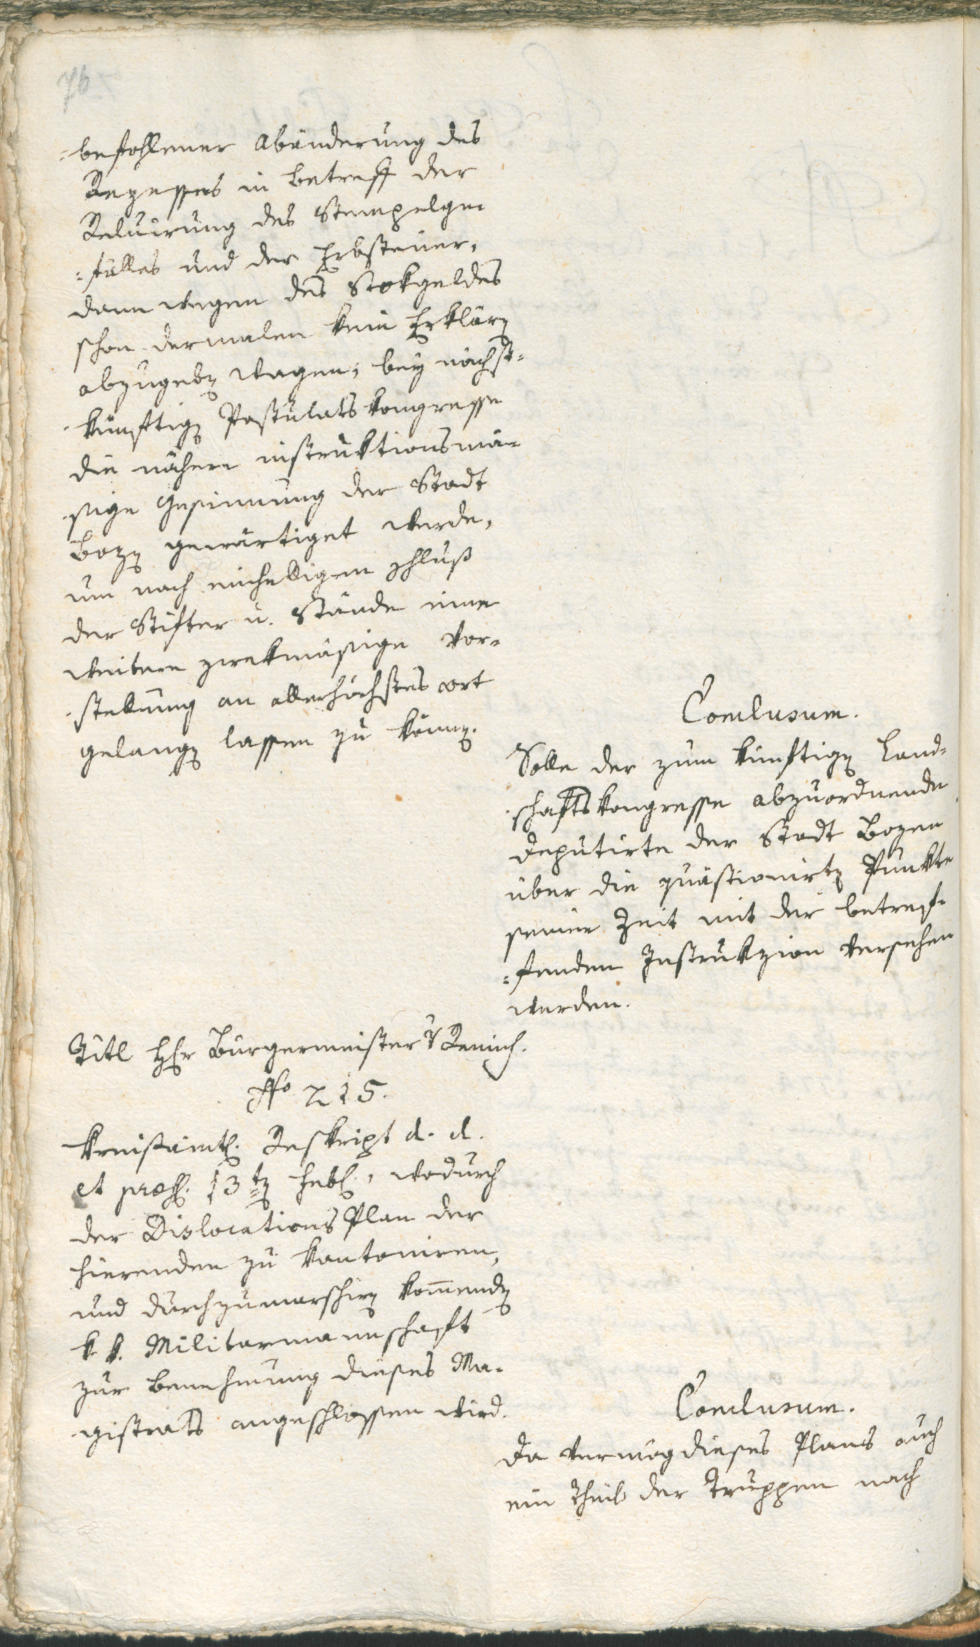 76
befohlener Abänderung des
Rezesses in Betreff der
Reluirung des Stempelge-
fälles und der Erbsteuer,
dann wegen des Stokgeldes
schon dermalen kein Erklärg
abzugeben wagen; bey nächst-
künftigen Postulatskongresse
die nähere instruktionsmä-
ßige Gesinnung der Stadt
Bozen gewärtiget werde,
um nach einhelligem Schluß
der Stifter u. Stände eine
weitere zwekmäßige Vor-
stellung an allerhöchstes ort
gelangen lassen zu können.
Conclusum.
Solle der zum künftigen Land-
schaftskongresse abzuordnende
Deputirte der Stadt Bozen
über die quästionirten Punkte
seiner Zeit mit der betref-
fenden Instrukzion versehen
werden.
Titl HHr Bürgermeister v Reinisch.
No 215.
Kreisämtl. Reskript d. d.
et præs. 13ten hebl., wodurch
der Dislocations Plan der
hierenden zu kantoniren,
und durchzumarschiren kommenden
k. k. Militarmannschaft
zur Benehmung dieses Ma-
gistrats angeschlossen wird.
Conclusum.
Da vermög dieses Plans auch
ein Theil der Truppen nach